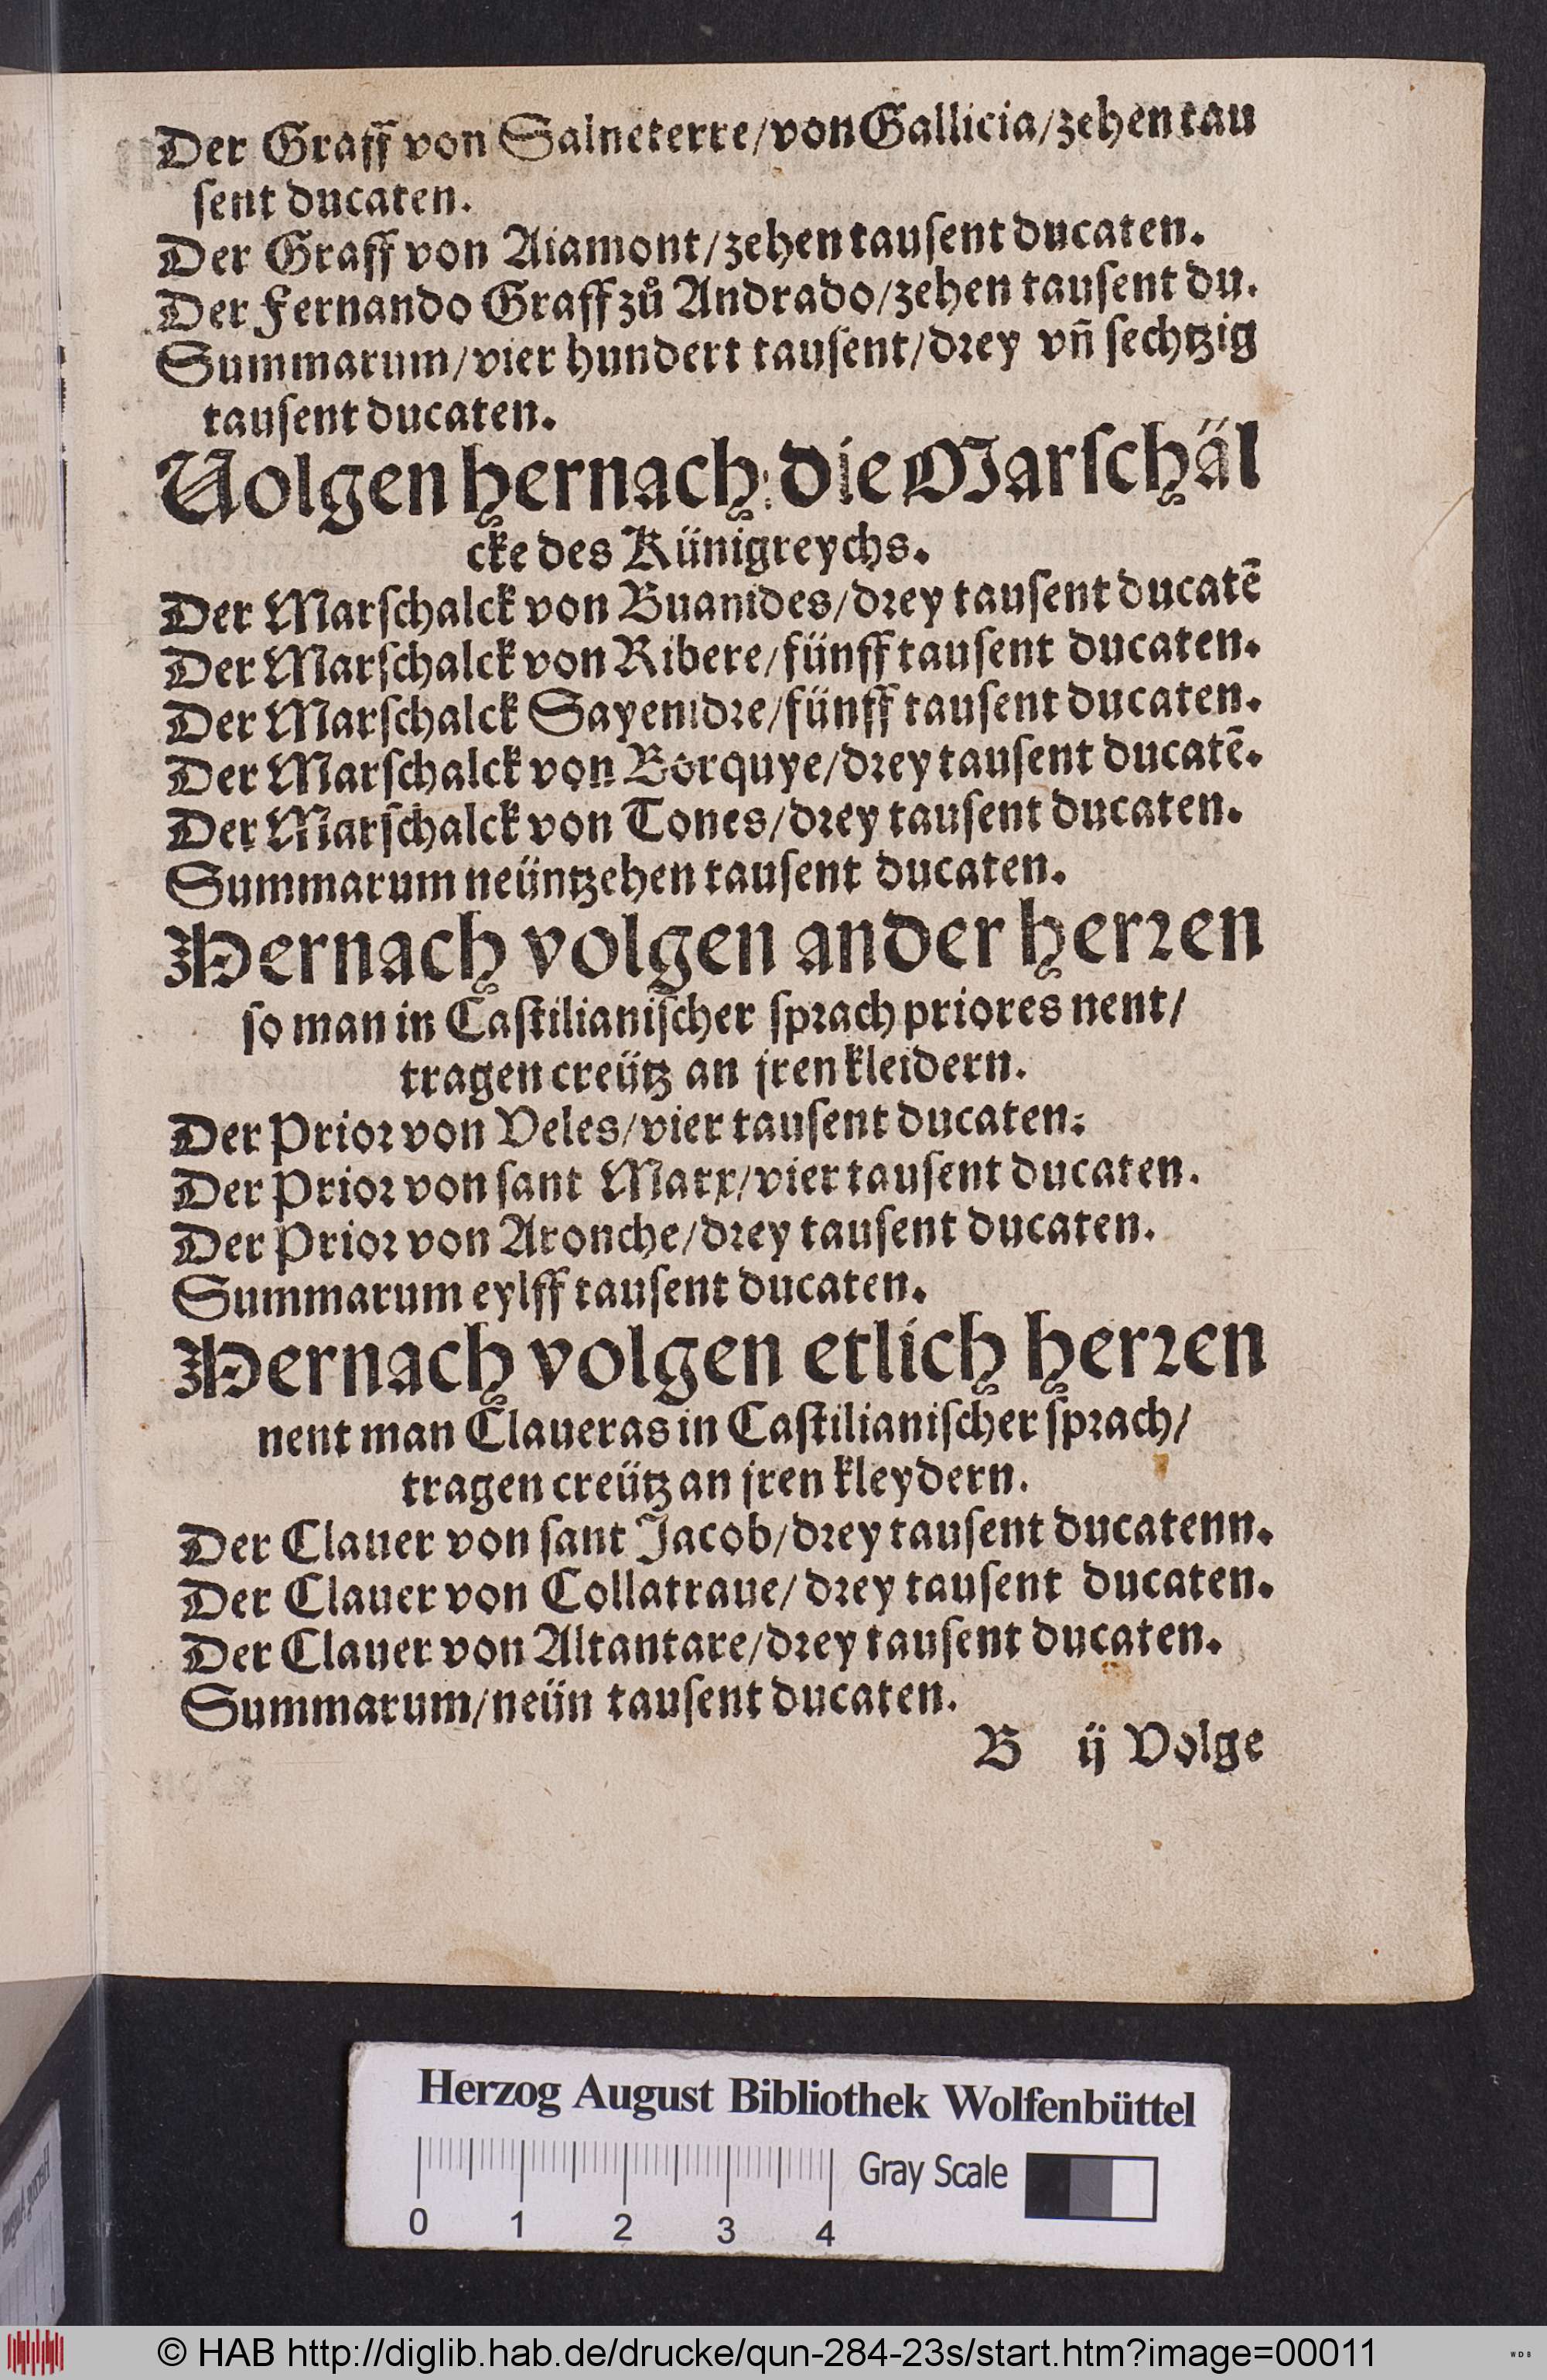 Der Graff von Salneterre/von Gallicia/zehen tau
ſent ducaten.
Der Graff von Aiamont/zehen tauſent ducaten.
Der Fernando Graff zů Andrado/zehen tauſent du.
Summarum/vier hundert tauſent/drey vn̄ ſechtzig
tauſent ducaten.
Volgen hernach die Marſchäl
cke des Künigreychs.
Der Marſchalck von Buanides/drey tauſent ducatē
Der Marſchalck von Ribere/fünff tauſent ducaten.
Der Marſchalck Sayenidre/fünff tauſent ducaten.
Der Marſchalck von Borquye/drey tauſent ducatē.
Der Marſchalck von Tones/drey tauſent ducaten.
Summarum neüntzehen tauſent ducaten.
Hernach volgen ander herren
ſo man in Caſtilianiſcher ſprach priores nent/
tragen creütz an jren kleidern.
Der Prior von Veles/vier tauſent ducaten.
Der Prior von ſant Marx/vier tauſent ducaten.
Der Prior von Aronche/drey tauſent ducaten.
Summarum eylff tauſent ducaten.
Hernach volgen etlich herren
nent man Claueras in Caſtilianiſcher ſprach/
tragen creütz an jren kleydern.
Der Clauer von ſant Jacob/drey tauſent ducatenn.
Der Clauer von Collatraue/drey tauſent ducaten.
Der Clauer von Altantare/drey tauſent ducaten.
Summarum/neün tauſent ducaten.
B ij Volge
Herzog August Bibliothek Wolfenbüttel
Gray Scale
0 1 2 3 4
© HAB http://diglib.hab.de/drucke/qun-284-23s/start.htm?image=00011